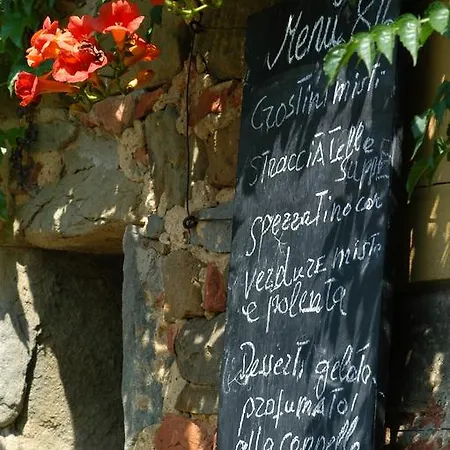 Menù
Crostini misti
stracciatelle
spezzatino con
verdure misti
e polenta
Desserti gelato
profumatoi
alla cannella